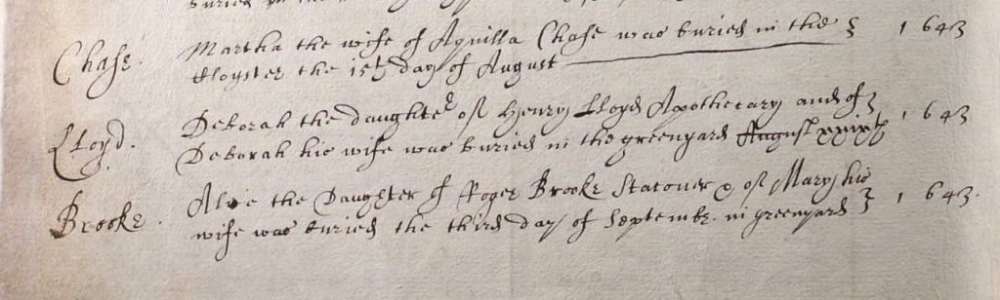 Chase. Martha the wife of Aquilla Chase was buried in the } 1643
Cloyster the 15th day of August
Lloyd. Deborah the daughter of Henry Lloyd Apothecary and of } 1643
Deborah his wife was buried in the greenyard August
Brooke. Alce the Daughter of Roger Brooke Stacioner & of Mary his } 1643.
wife was buried the third day of Septembr. in greenyard